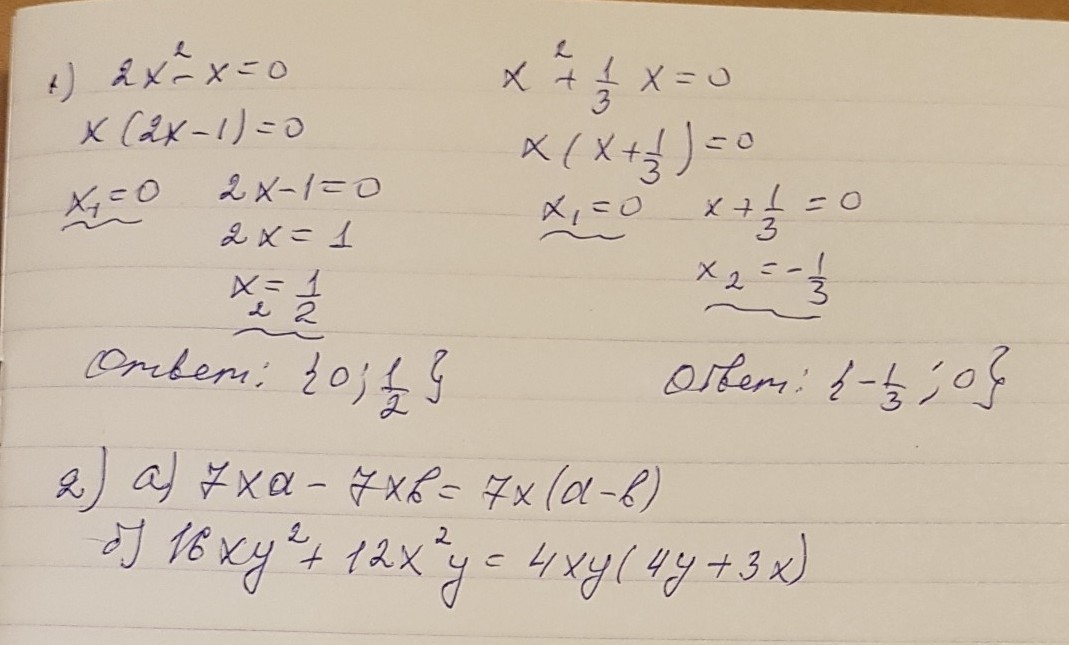 1) 2x² - x = 0
x(2x-1) = 0
x₁ = 0 2x-1 = 0
2x = 1
x₂ = 1/2
Ответ: {0; 1/2}
x² + 1/3 x = 0
x(x + 1/3) = 0
x₁ = 0 x + 1/3 = 0
x₂ = -1/3
Ответ: {-1/3; 0}
2) а) 7xa - 7xb = 7x(a-b)
б) 16xy² + 12x²y = 4xy(4y+3x)